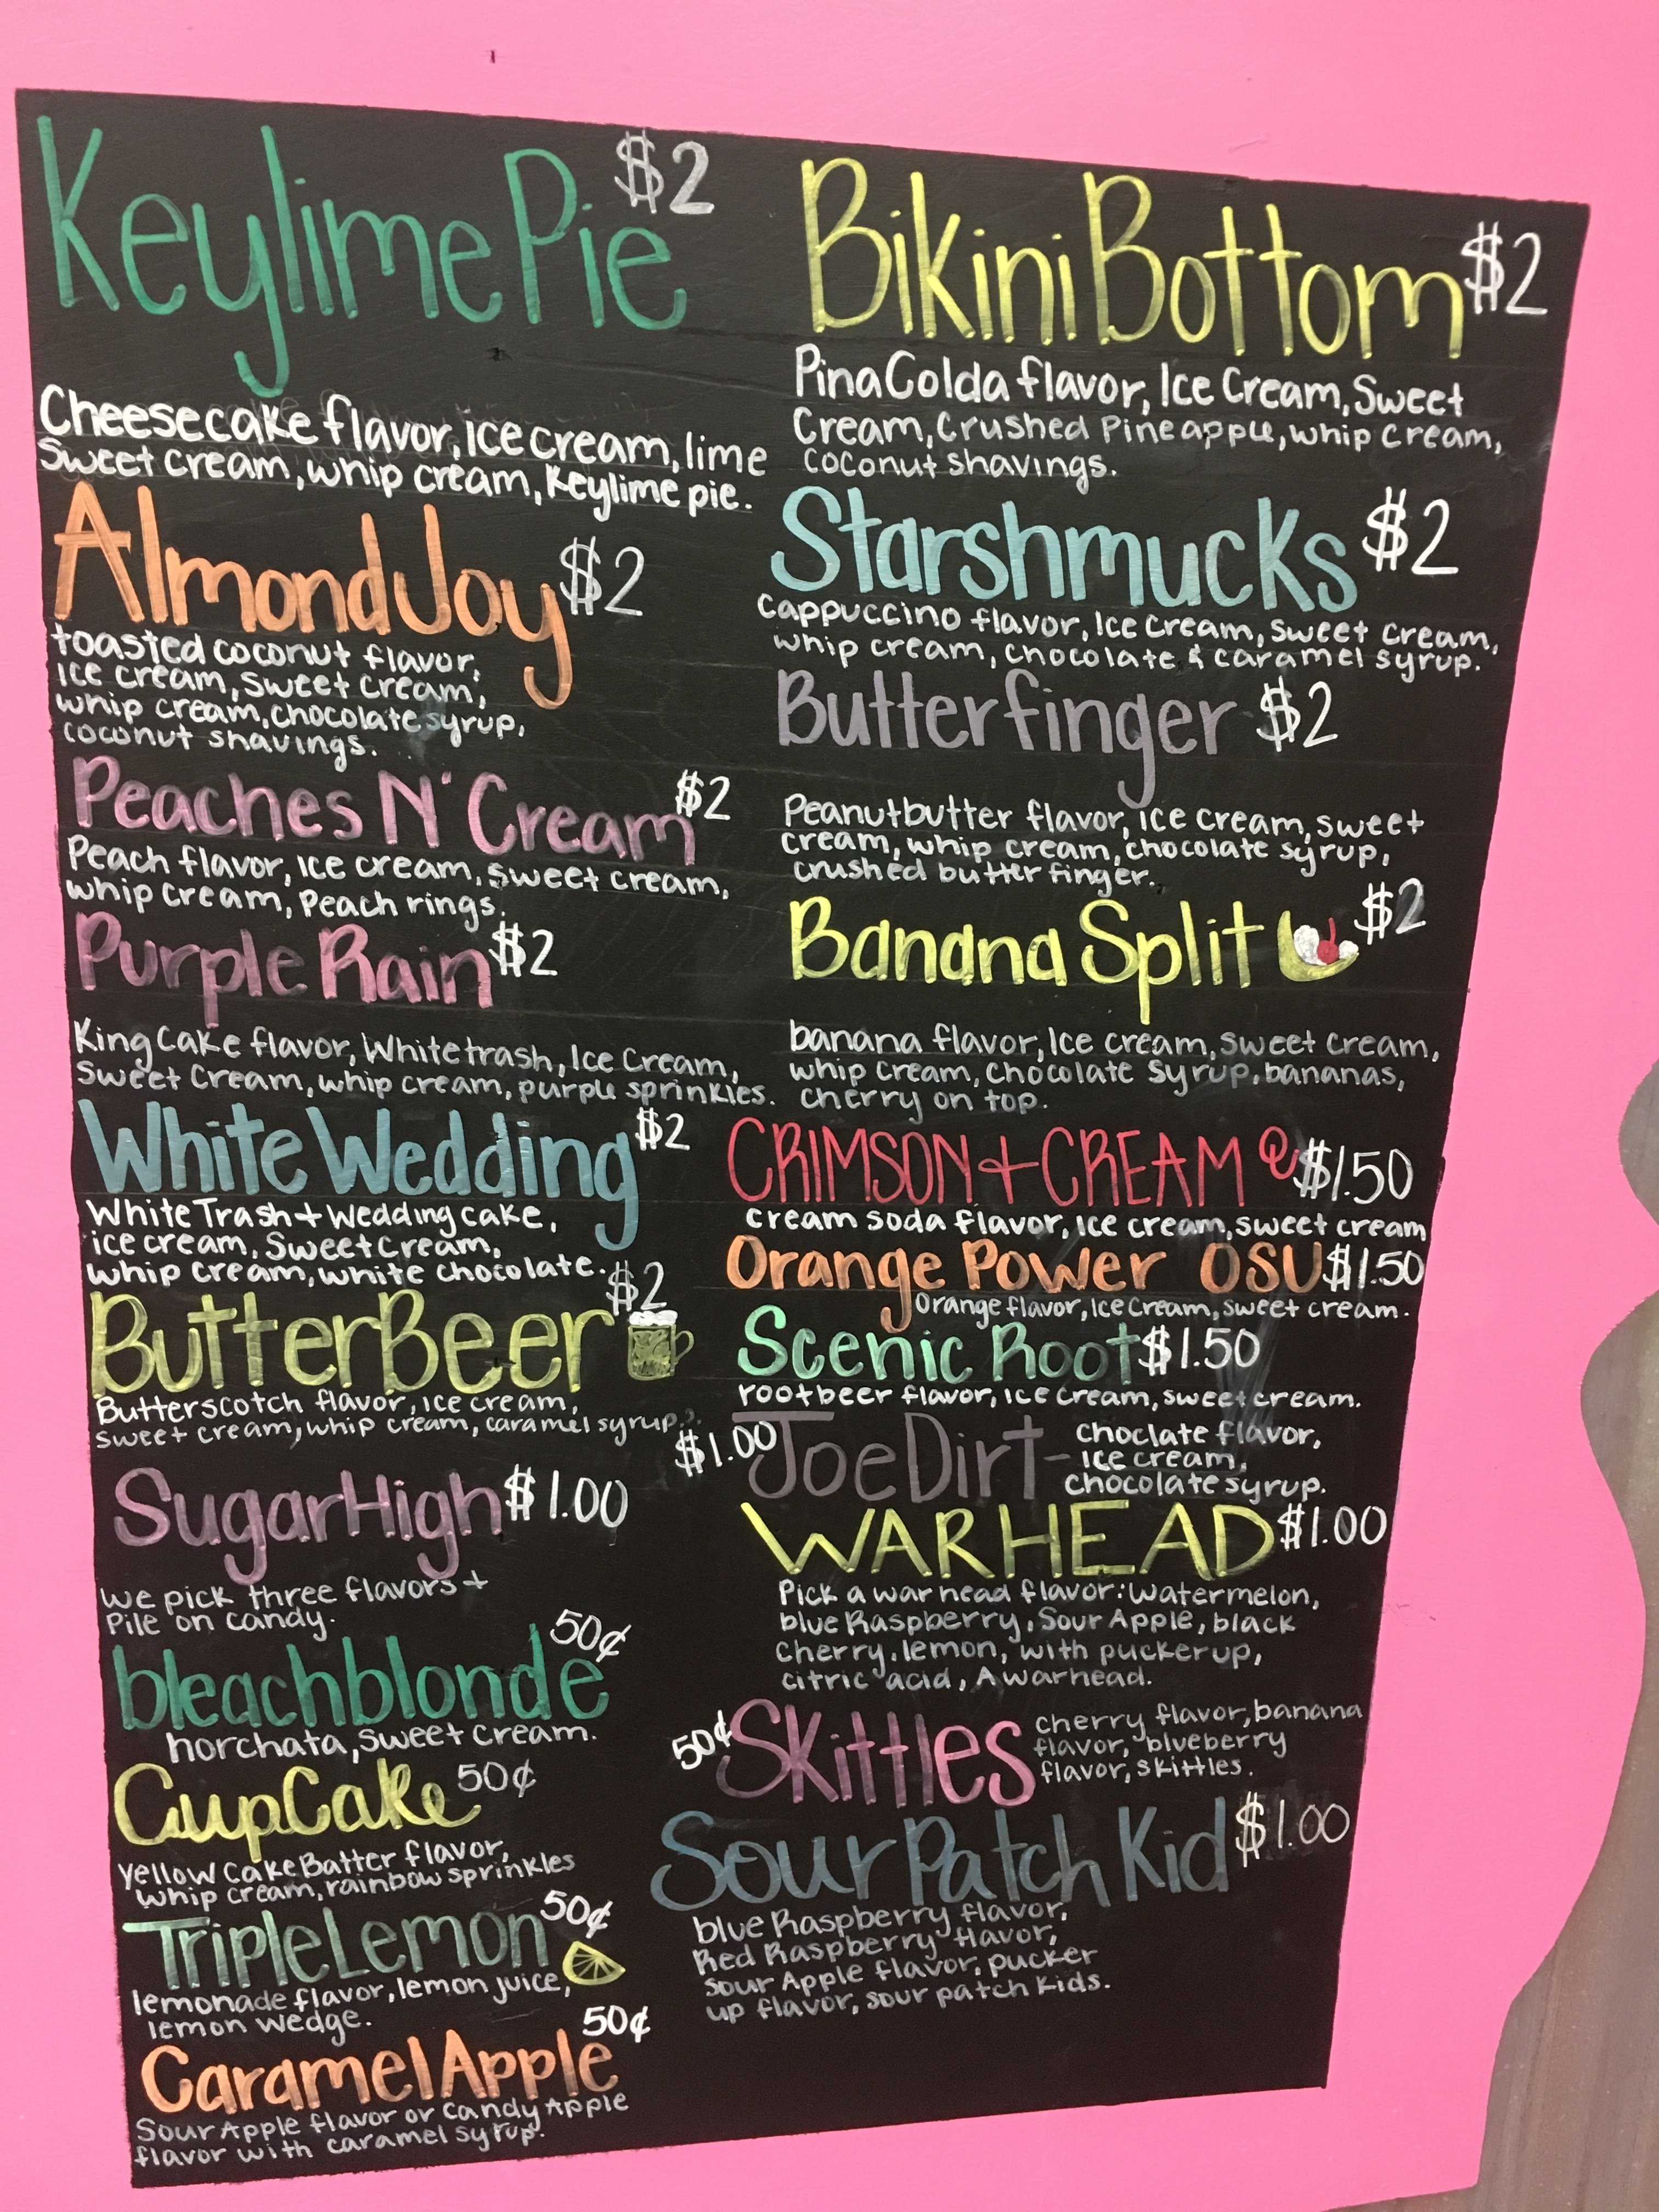 Keylime Pie $2
Cheesecake flavor, ice cream, lime
Sweet cream, whip cream, Keylime pie.
Almond Joy $2
toasted coconut flavor,
Ice cream, sweet cream,
whip cream, chocolate syrup,
coconut shavings.
Peaches N' Cream $2
Peach flavor, ice cream, sweet cream,
whip cream, Peach rings.
Purple Rain $2
King Cake flavor, White trash, Ice Cream,
Sweet Cream, whip cream, purple sprinkles.
White Wedding $2
White Trash + Wedding cake,
ice cream, Sweet Cream,
whip cream, white chocolate.
ButterBeer $2
Butterscotch flavor, ice cream,
sweet cream, whip cream, caramel syrup.
Sugar High $1.00
we pick three flavors +
Pile on candy.
bleach blonde 50¢
horchata, sweet cream.
CupCake 50¢
Yellow Cake Batter flavor,
whip cream, rainbow sprinkles
Triple Lemon 50¢
lemonade flavor, lemon juice,
lemon wedge.
Caramel Apple 50¢
Sour Apple flavor or Candy Apple
flavor with caramel syrup.
Bikini Bottom $2
Pina Colda flavor, Ice Cream, Sweet
Cream, Crushed Pineapple, whip cream,
coconut shavings.
Starshmucks $2
Cappuccino flavor, Ice cream, sweet cream,
whip cream, chocolate & caramel syrup.
Butterfinger $2
Peanutbutter flavor, ice cream, sweet
cream, whip cream, chocolate syrup,
crushed butter finger.
Banana Split $2
banana flavor, Ice cream, sweet cream,
whip cream, chocolate syrup, bananas,
cherry on top.
CRIMSON + CREAM $1.50
cream soda flavor, ice cream, sweet cream
Orange Power OSU $1.50
Orange flavor, Ice Cream, sweet cream.
Scenic Root $1.50
rootbeer flavor, ice cream, sweet cream.
$1.00 Joe Dirt - choclate flavor,
ice cream,
chocolate syrup.
WARHEAD $1.00
Pick a war head flavor: Watermelon,
blue Raspberry, Sour Apple, black
cherry, lemon, with pucker up,
citric acid, A warhead.
50¢ Skittles cherry flavor, banana
flavor, blueberry
flavor, skittles.
Sour Patch Kid $1.00
blue Raspberry flavor,
Red Raspberry flavor,
sour Apple flavor, pucker
up flavor, sour patch kids.